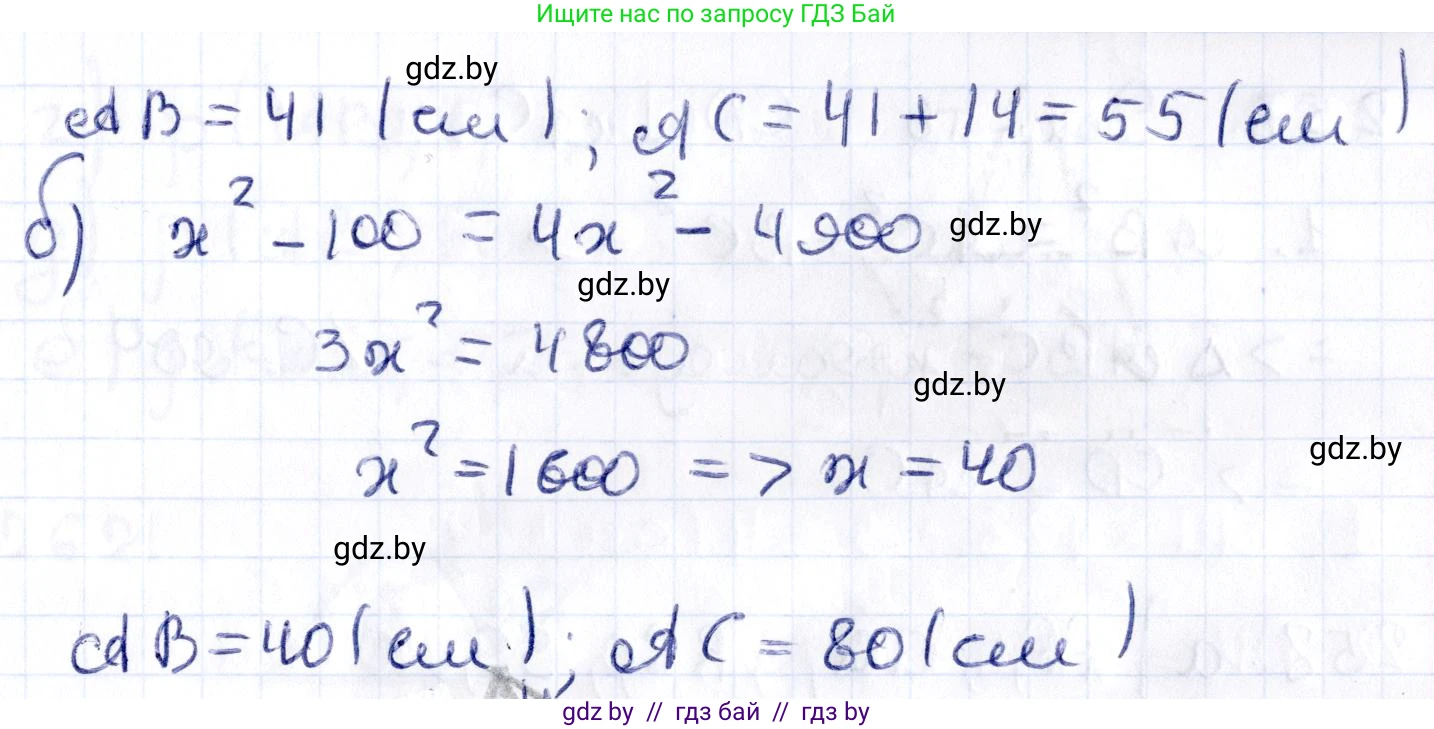 Ищите нас по запросу ГДЗ Бай
gdz.by
AB = 41 (см); AC = 41 + 14 = 55 (см)
б) x² - 100 = 4x² - 4900 gdz.by
gdz.by
3x² = 4800
gdz.by
x² = 1600 => x = 40 gdz.by
gdz.by
AB = 40 (см); AC = 80 (см)
gdz by // гдз бай // гдз by